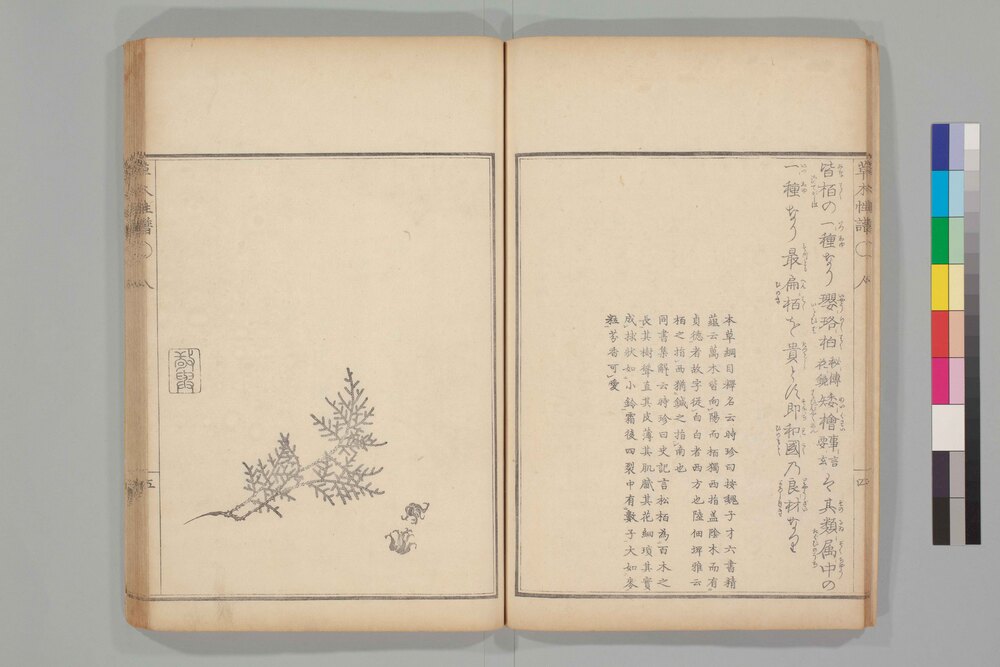 皆栢の一種なり瓔珞柏秘傳花鏡矮檜事言要玄は其類属中の
一種なり最扁栢を貴とす即和國乃良材なり
本草綱目釋名云時珍曰按魏子才六書精
蘊云萬木皆向陽而栢獨西指盖陰木而有
貞德者故字従白白者西方也陸佃埤雅云
栢之指西猶鍼之指南也
同書集解云時珍曰史記言松栢為百木之
長其樹聳直其皮薄其肌膩其花細瑣其實
成捄狀如小鈴霜後四裂中有數子大如麥
粒芬香可愛
草木性譜
八
四
草木性譜
八
五